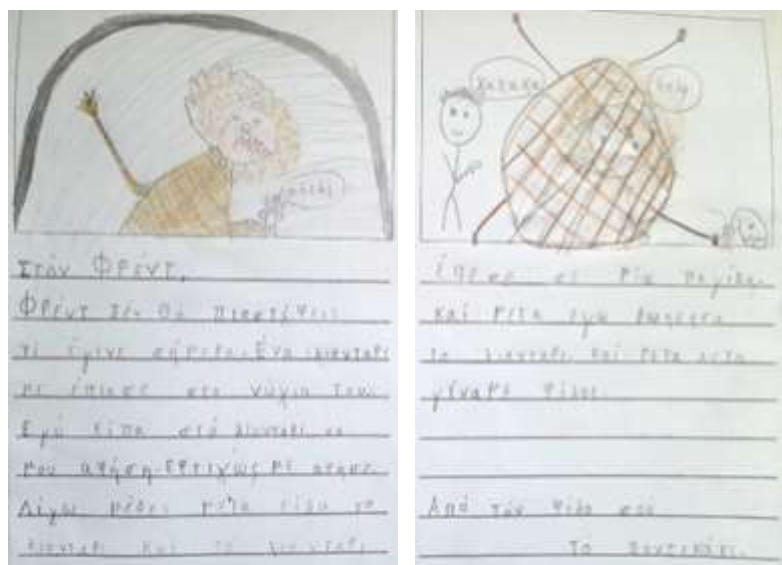 Στόν Φρέντ,
Φρέντ δέν θά πιστέψεις
τί έγινε σήμερα. Ένα λιονταρι
με έπιασε στα νύχια του.
Εγώ είπα στό λιονταρι να
μου αφήση. Εφτιχώς με αφησε.
Λίγω μέρες μετα είδα το
λιονταρι και το λιονταρι
έπεσε σε μία παγίδα.
και μετα εγω
το λιονταρι και μετα
γίναμε φίλοι.
Από τόν φίλο σου
τό ποντικάκι.
χαχαχα